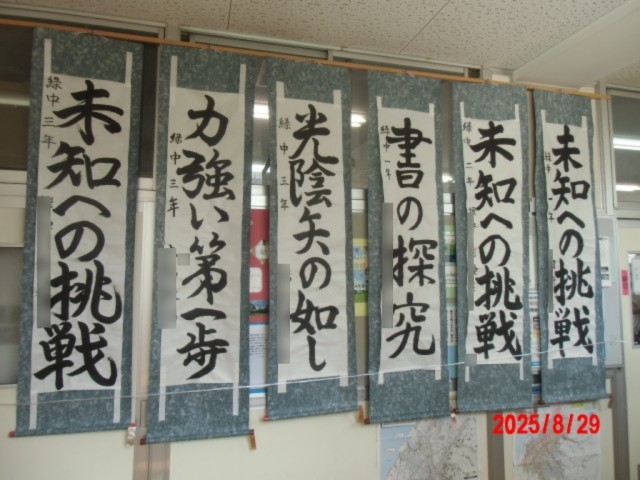 未知への挑戦
緑中三年
力強い第一歩
緑中三年
光陰矢の如し
緑中三年
書の探究
緑中一年
未知への挑戦
緑中二年
未知への挑戦
2025/8/29